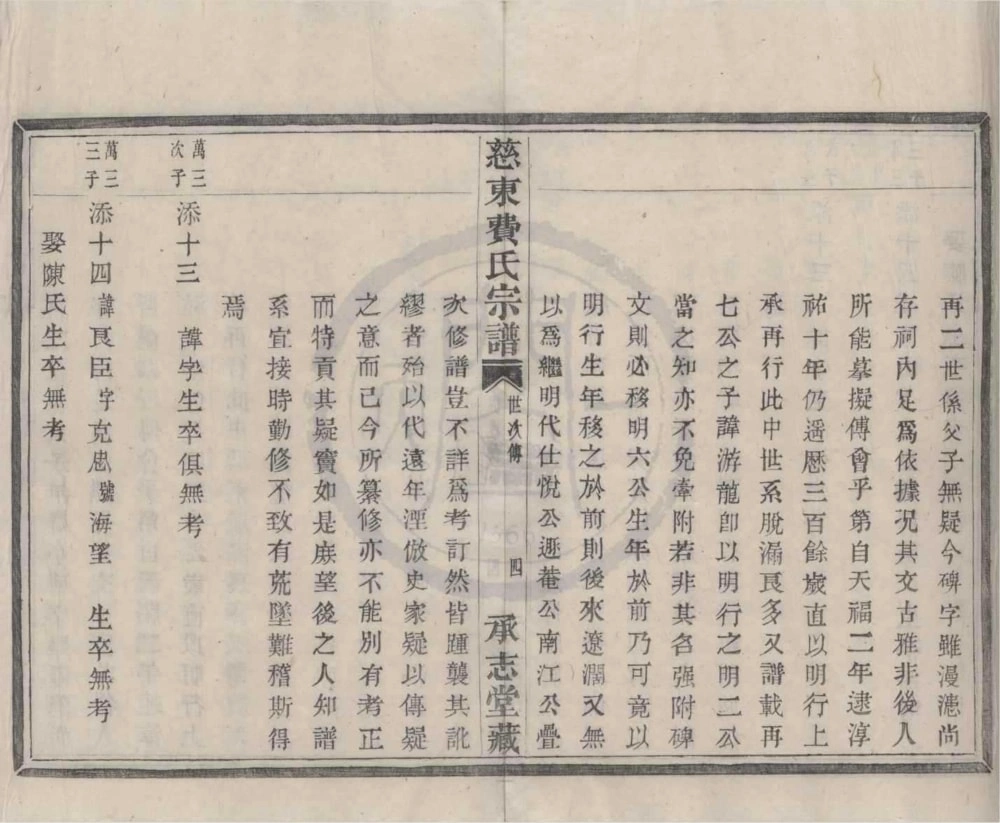 再二世係父子無疑今碑字雖漫漶尚
存祠內足爲依據況其文古雅非後人
所能摹擬傅會乎第自天福二年逮淳
祐十年仍遥歷三百餘歲直以明行上
承再行此中世系脫漏良多又譜載再
七公之子諱游龍卽以明行之明二公
當之知亦不免牽附若非其名强附碑
文則必移明六公生年於前乃可竟以
明行生年移之於前則後來遼濶又無
以爲繼明代仕悅公遯菴公南江公疊
次修譜豈不詳爲考訂然皆踵襲其訛
繆者殆以代遠年湮倣史家疑以傳疑
之意而已今所纂修亦不能別有考正
而特貢其疑竇如是庶望後之人知譜
系宜接時勤修不致有荒墜難稽斯得
焉
萬三次子
添十三 諱字生卒俱無考
萬三三子
添十四 諱良臣字克忠號海望 生卒無考
娶陳氏生卒無考
慈東費氏宗譜 世次傳 四 承志堂藏